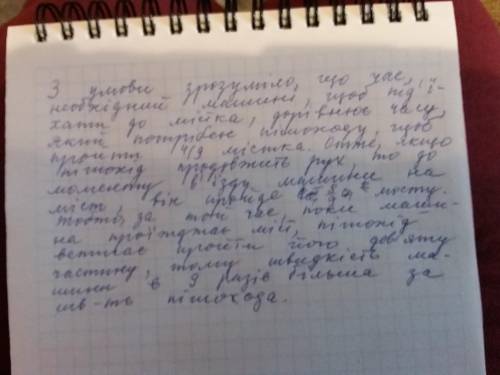 З умови зрозуміло, що час,
необхідний машині, щоб під'ї-
хати до містка, дорівнює часу,
який потрібен пішоходу, щоб
пройти 4/9 містка. Отже, якщо
пішохід продовжить рух, то до
моменту в'їзду машини на
міст, він пройде 8/9 мосту.
Тобто, за той час, поки маши-
на проїжджає міст, пішохід
встигає пройти його дев'яту
частину, тому швидкість ма-
шини в 9 разів більша за
шв-ть пішохода.